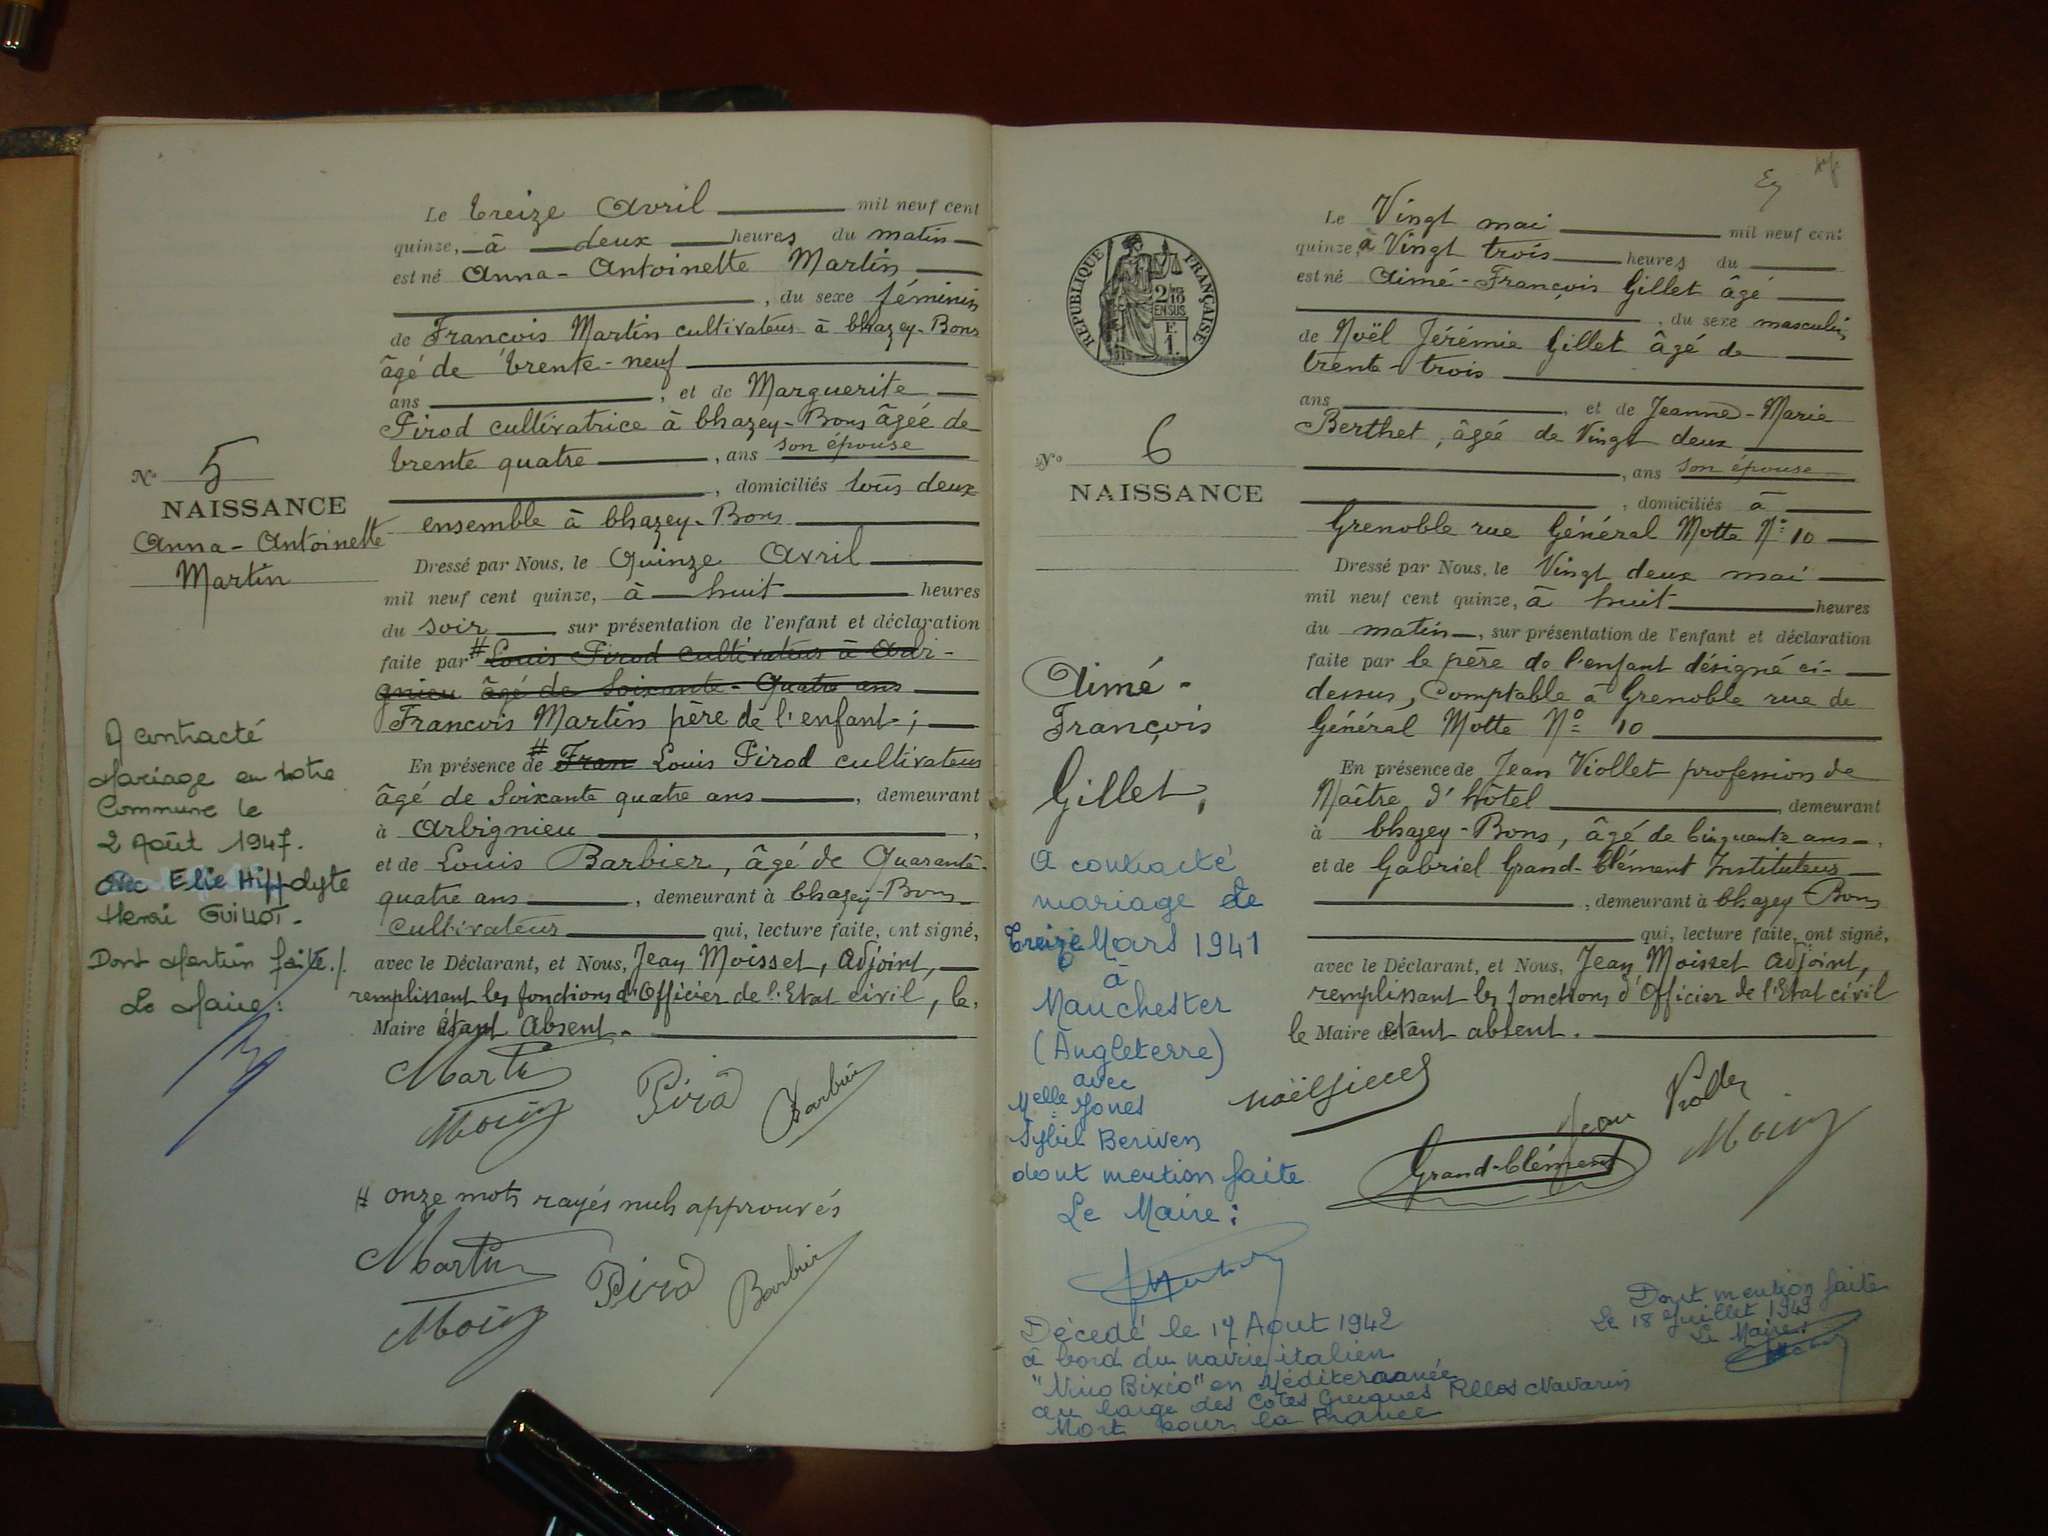 Le treize Avril mil neuf cent
quinze, à deux heures du matin
est né Anna-Antoinette Martin
, du sexe féminin
de François Martin cultivateur à Chazey-Bons
âgé de trente-neuf
ans , et de Marguerite
Pirod cultivatrice à Chazey-Bons âgée de
trente quatre , ans son épouse
, domiciliés tous deux
ensemble à Chazey-Bons
Dressé par Nous, le Quinze Avril
mil neuf cent quinze, à huit heures
du soir sur présentation de l'enfant et déclaration
faite par # Louis Pirod cultivateur à Arbi-
gnieu âgé de Soixante-Quatre ans
François Martin père de l'enfant ;
En présence # de Fran Louis Pirod cultivateur
âgé de Soixante quatre ans , demeurant
à Arbignieu ,
et de Louis Barbier, âgé de Quarante-
quatre ans , demeurant à Chazey-Bons
Cultivateur qui, lecture faite, ont signé,
avec le Déclarant, et Nous, Jean Moisset, Adjoint,
remplissant les fonctions d'Officier de l'Etat civil, le
Maire étant Absent.
Martin Pirod Barbier
# onze mots rayés nuls approuvés
Martin Pirod Barbier
No 5
NAISSANCE
Anna-Antoinette
Martin
A contracté
Mariage en notre
Commune le
2 Août 1947.
avec Elie Hippolyte
Henri GUILLOT.
Dont Mention faite ./.
Le Maire :
REPUBLIQUE FRANÇAISE
2/10
EN SUS
F.
1.
No 6
NAISSANCE
Aimé-
François
Gillet,
A contracté
mariage le
treize Mars 1941
à
Manchester
(Angleterre)
avec
Melle Jones
Sybil Beriven
dont mention faite
Le Maire :
Décédé le 17 Aout 1942
à bord du navire italien
"Nino Bixio" en Méditerranée
au large des Côtes Grecques Pylos Navarin
Mort pour la France
Le Vingt mai mil neuf cent
quinze, à Vingt trois heures du
est né Aimé-François Gillet âgé
, du sexe masculin
de Noël Jérémie Gillet âgé de
trente-trois
ans , et de Jeanne-Marie
Berthet, âgée de Vingt deux
, ans son épouse
, domiciliés à
Grenoble rue Général Motte No 10
Dressé par Nous, le Vingt deux mai
mil neuf cent quinze, à huit heures
du matin , sur présentation de l'enfant et déclaration
faite par le père de l'enfant désigné ci-
dessus, Comptable à Grenoble rue de
Général Motte No 10
En présence de Jean Viollet profession de
Maître d'hôtel , demeurant
à Chazey-Bons, âgé de Cinquante ans ,
et de Gabriel Grand-Clément Instituteur
, demeurant à Chazey Bons
qui, lecture faite, ont signé,
avec le Déclarant, et Nous, Jean Moisset Adjoint,
remplissant les fonctions d'Officier de l'Etat civil
le Maire étant absent.
Jean Viollet
Grand-Clément
Dont mention faite
Le 18 Juillet 1949
Le Maire :